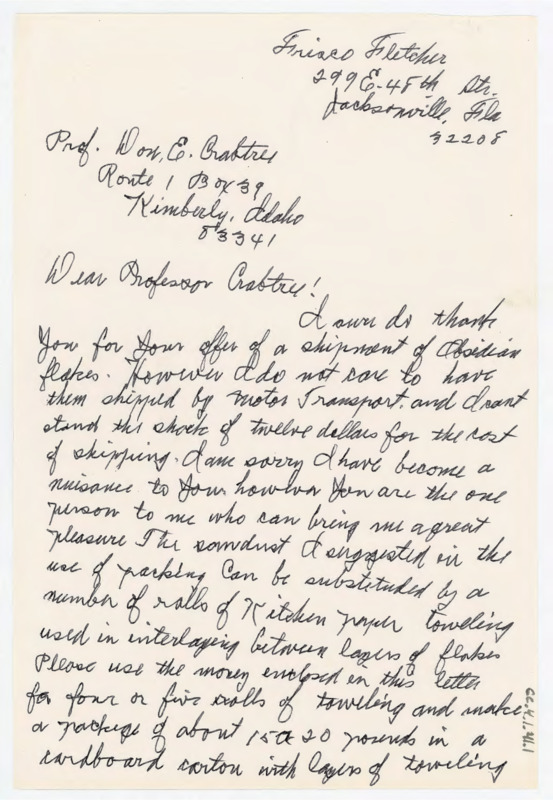 Frisco Fletcher
299 E-48th Str.
Jacksonville, Fla
32208
Prof. Don, E. Crabtree
Route 1 Box 39
Kimberly, Idaho
83341
Dear Professor Crabtree!
I sure do thank
You for Your offer of a shipment of Obsidian
flakes. However I do not care to have
them shipped by motor Transport. and I cant
stand the shock of twelve dollars for the cost
of shipping. I am sorry I have become a
nuisance to You, however You are the one
person to me who can bring me a great
pleasure The sawdust I suggested in the
use of packing Can be substituded by a
number of rolls of Kitchen paper toweling
used in interlaying between layers of flakes
Please use the money enclosed in this letter
for four or five rolls of toweling and make
a package of about 15 a 20 pounds in a
cardboard carton with layers of toweling
CC.4.1.41.1